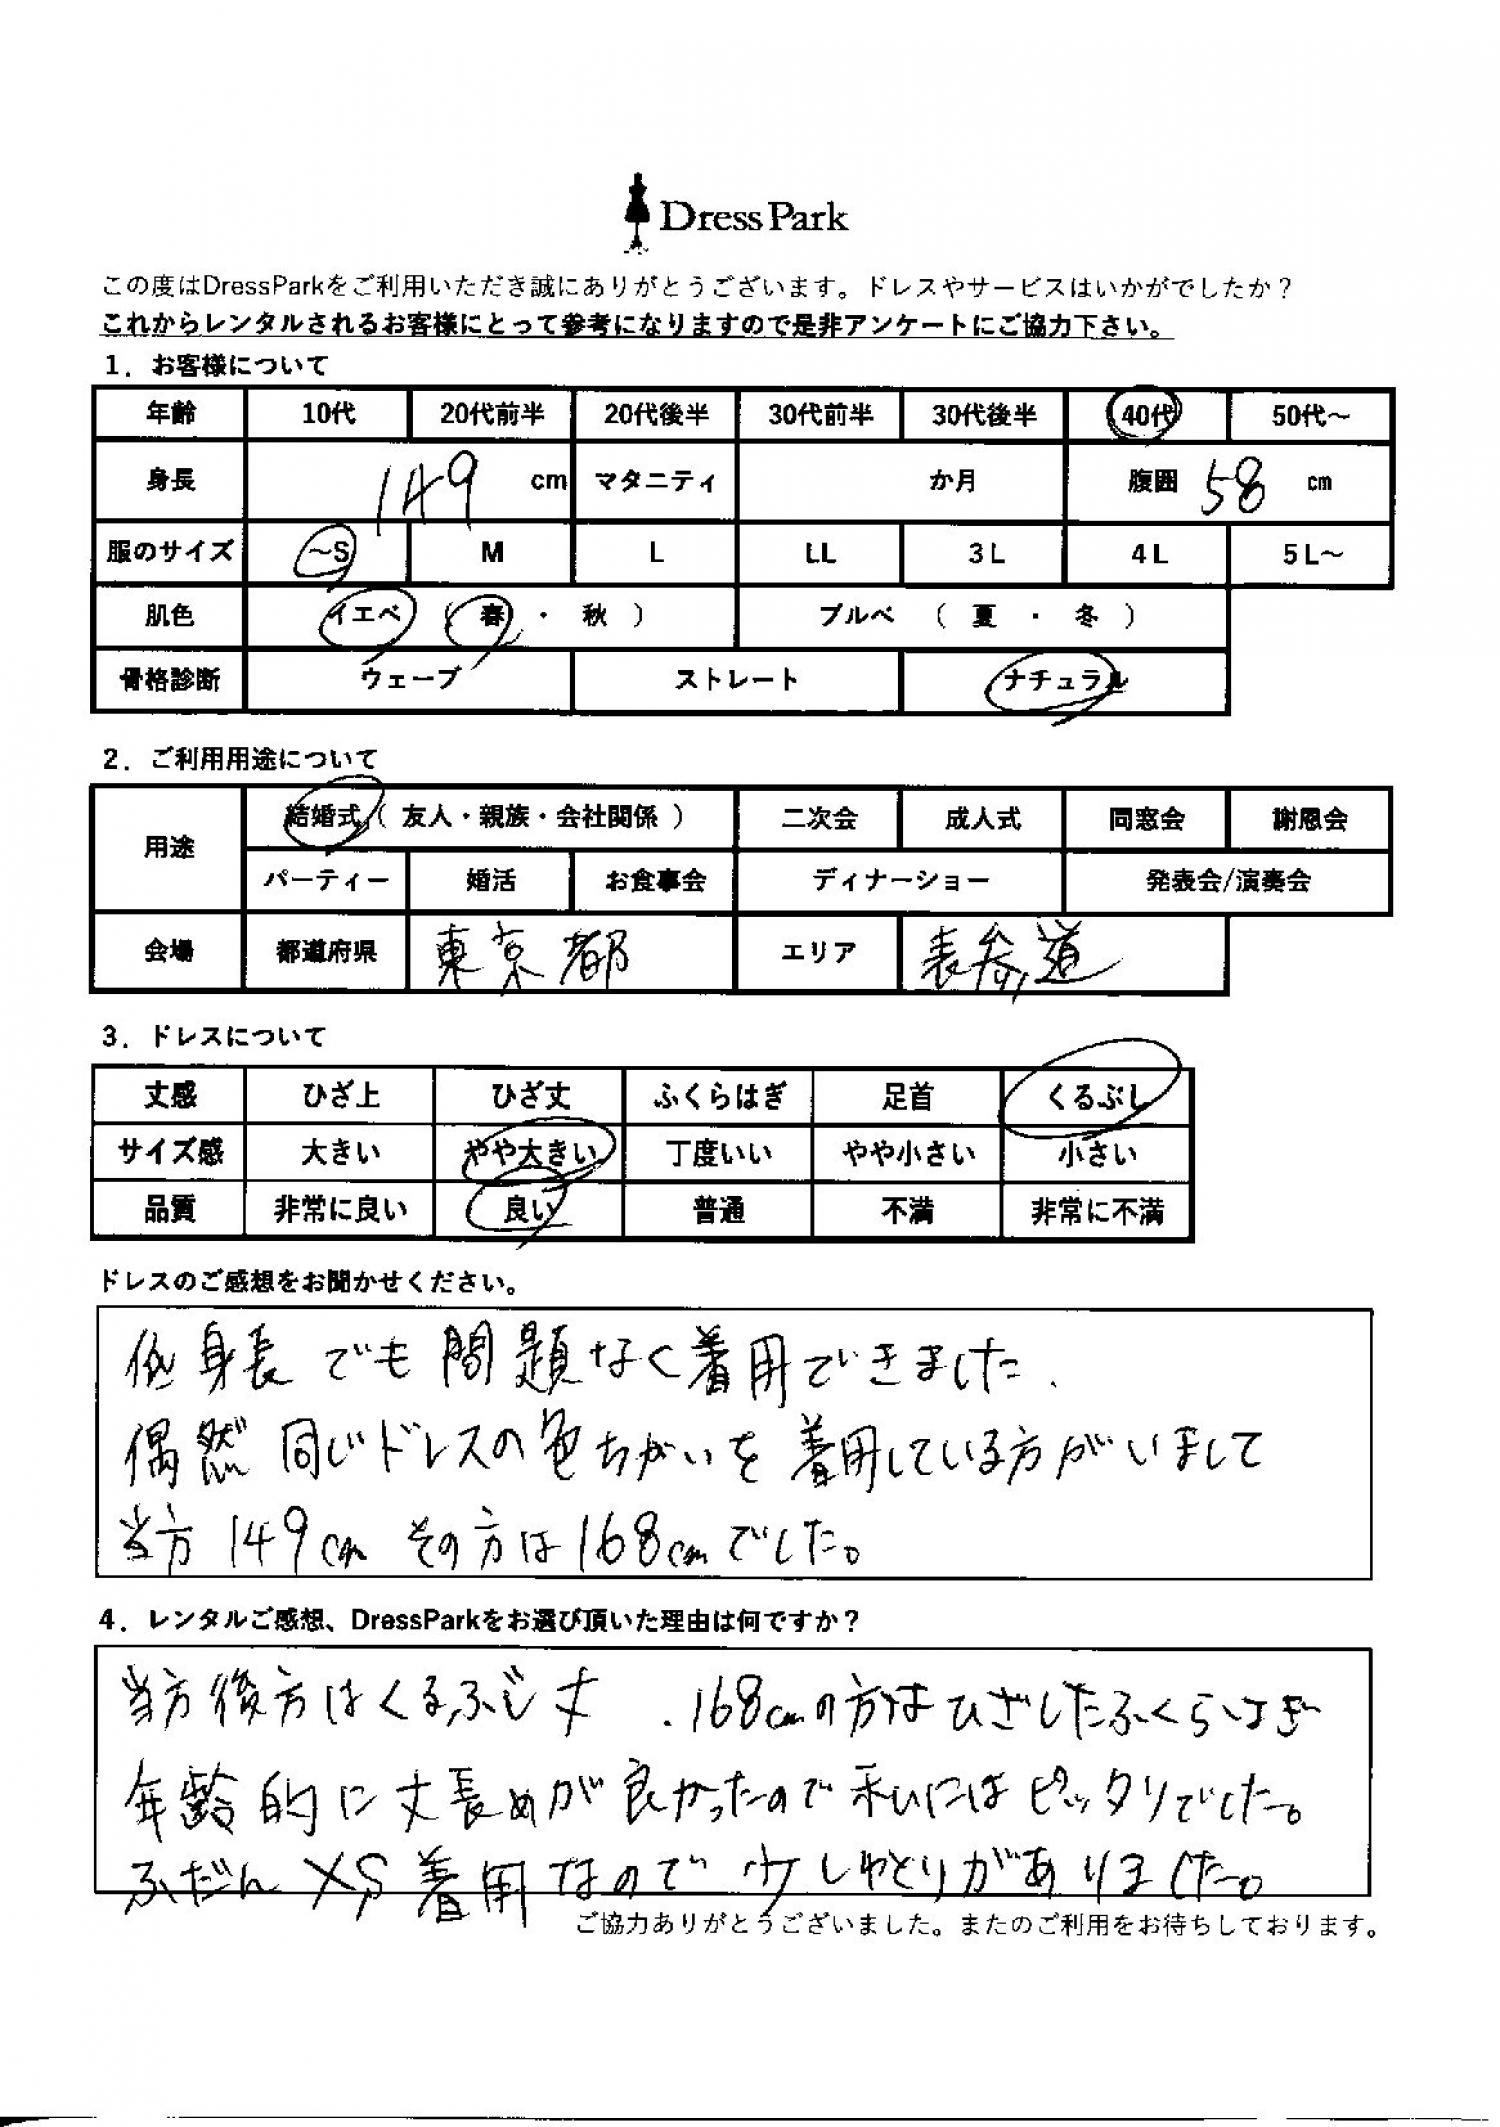 Dress Park
この度はDressParkをご利用いただき誠にありがとうございます。ドレスやサービスはいかがでしたか？
これからレンタルされるお客様にとって参考になりますので是非アンケートにご協力下さい。
1．お客様について
年齢 10代 20代前半 20代後半 30代前半 30代後半 40代 50代～
身長 149 cm マタニティ か月 腹囲 58 cm
服のサイズ ～S M L LL 3L 4L 5L～
肌色 イエベ （ 春 ・ 秋 ） ブルベ （ 夏 ・ 冬 ）
骨格診断 ウェーブ ストレート ナチュラル
2．ご利用用途について
用途 結婚式（ 友人・親族・会社関係 ） 二次会 成人式 同窓会 謝恩会
パーティー 婚活 お食事会 ディナーショー 発表会/演奏会
会場 都道府県 東京都 エリア 表参道
3．ドレスについて
丈感 ひざ上 ひざ丈 ふくらはぎ 足首 くるぶし
サイズ感 大きい やや大きい 丁度いい やや小さい 小さい
品質 非常に良い 良い 普通 不満 非常に不満
ドレスのご感想をお聞かせください。
低身長でも問題なく着用できました.
偶然同じドレスの色ちがいを着用している方がいまして
当方149cm その方は168cmでした。
4．レンタルご感想、DressParkをお選び頂いた理由は何ですか？
当方後方はくるぶし丈 .168cmの方はひざしたふくらはぎ
年齢的に丈長めが良かったので私にはピッタリでした。
ふだんXS着用なので少しゆとりがありました。
ご協力ありがとうございました。またのご利用をお待ちしております。